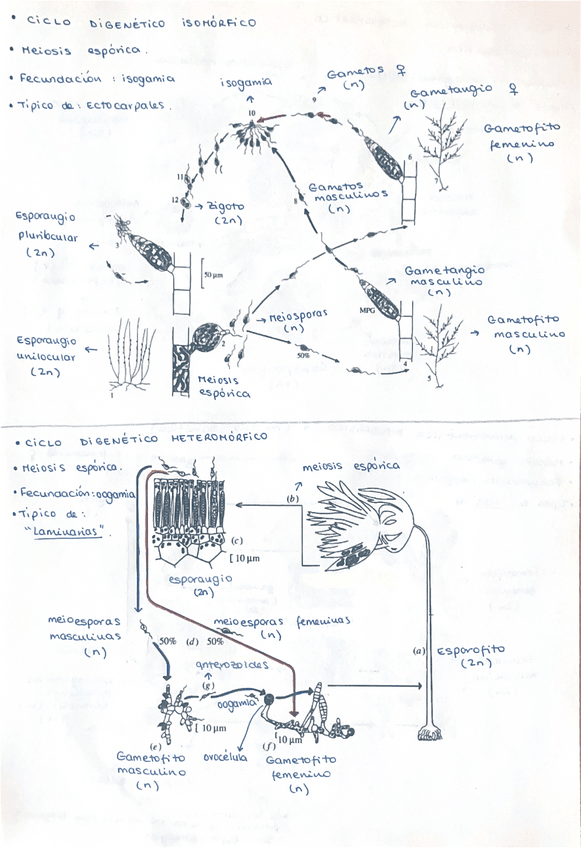 • CICLO DIGENÉTICO ISOMÓRFICO
• Meiosis espórica.
• Fecundación: isogamia
• Típico de: Ectocarpales.
isogamia
10
Gametos ♀
(n)
9
Gametangio ♀
(n)
Gametofito
femenino
(n)
6
7
11
12
Zigoto
(2n)
Gametos
masculinos
(n)
8
Esporangio
plurilocular
(2n)
3
50 µm
Gametangio
masculino
(n)
MPG
Meiosporas
(n)
2
Gametofito
masculino
(n)
Esporangio
unilocular
(2n)
1
50%
4
5
Meiosis
espórica
• CICLO DIGENÉTICO HETEROMÓRFICO
• Meiosis espórica.
• Fecundación: oogamia
• Típico de:
"Laminarias".
meiosis espórica
(b)
(c)
[ 10 µm
esporangio
(2n)
meioesporas
masculinas
(n)
meioesporas femeninas
(n)
50% (d) 50%
(a)
Esporofito
(2n)
anterozoides
(g)
oogamia
[ 10 µm
(e)
10 µm
(f)
Gametofito
masculino
(n)
ovocélula
Gametofito
femenino
(n)